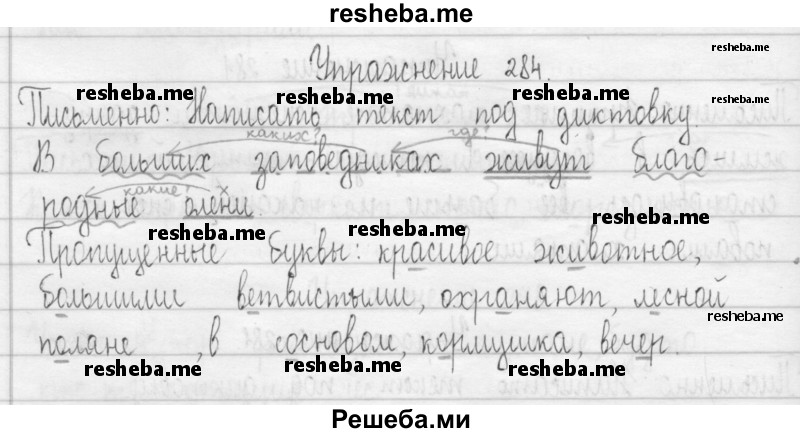 resheba.me
Упражнение 284.
resheba.me
resheba.me resheba.me resheba.me resheba.me
Письменно: Написать текст под диктовку.
каких? где?
В больших заповедниках живут благо-
какие?
родные олени.
resheba.me resheba.me resheba.me
Пропущенные буквы: красивое животное,
большими ветвистыми, охраняют, лесной
resheba.me
поляне, в сосновом, кормушка, вечер.
resheba.me resheba.me resheba.me
Решеба.ми